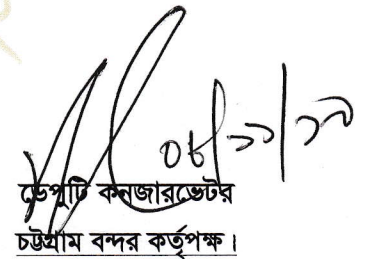 ০৬/১১/১৯
ডেপুটি কনজারভেটর
চট্টগ্রাম বন্দর কর্তৃপক্ষ।